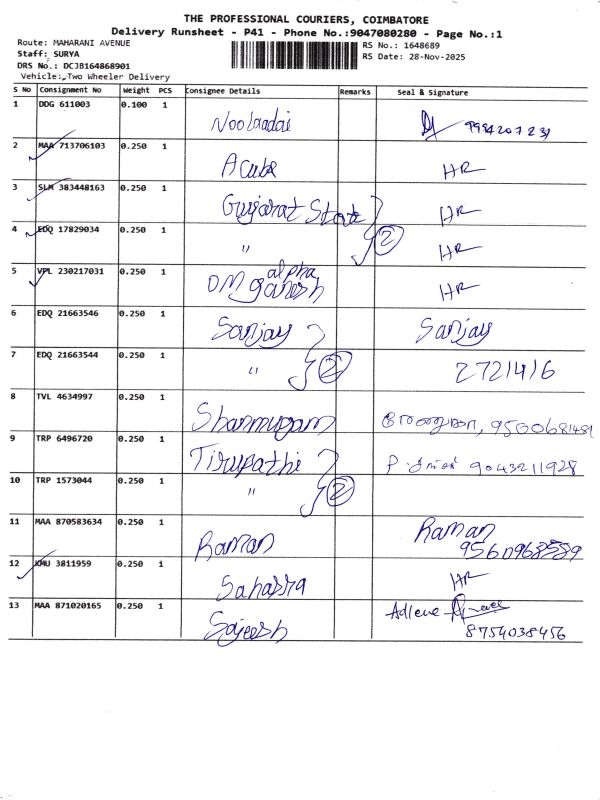 THE PROFESSIONAL COURIERS, COIMBATORE
Delivery Runsheet - P41 - Phone No.:9047080280 - Page No.:1
Route: MAHARANI AVENUE
RS No.: 1648689
Staff: SURYA
RS Date: 28-Nov-2025
DRS No.: DCJB164868901
Vehicle: Two Wheeler Delivery
S No Consignment No Weight PCS Consignee Details Remarks Seal & Signature
1 DDG 611003 0.100 1
2 MAA 713706103 0.250 1 HR
3 SLM 383448163 0.250 1 Gujarat State HR
4 EDQ 17829034 0.250 1 " 2 HR
5 VPL 230217031 0.250 1 OM alpha ganesh HR
6 EDQ 21663546 0.250 1 Sanjay Sanjay
7 EDQ 21663544 0.250 1 " 2 272/4/6
8 TVL 4634997 0.250 1 Shanmugam
9 TRP 6496720 0.250 1 Tirupathi 9043211928
10 TRP 1573044 0.250 1 " 2
11 MAA 870583634 0.250 1 Raman Raman
12 KMU 3811959 0.250 1 Sahasra HR
13 MAA 871020165 0.250 1 Sajeesh Adlene
8754038456